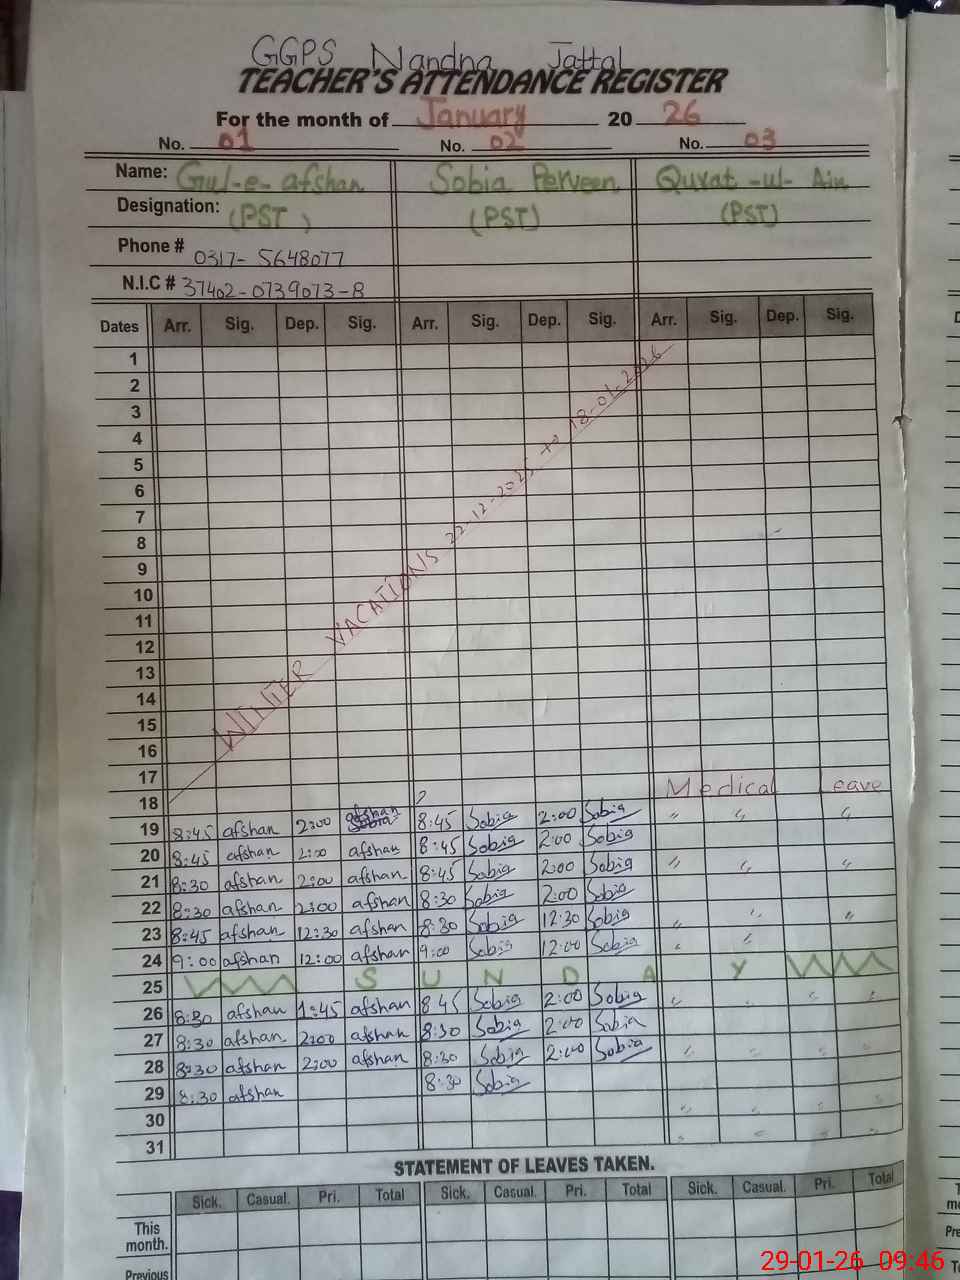 GGPS Nandna Jattal
TEACHER'S ATTENDANCE REGISTER
For the month of January 20 26
No. 01 No. 02 No. 03
Name: Gul-e-afshan Sobia Perveen Quvat-ul-Ain
Designation: (PST) (PST) (PST)
Phone # 0317-5648077
N.I.C # 37402-0739073-8
Dates Arr. Sig. Dep. Sig. Arr. Sig. Dep. Sig. Arr. Sig. Dep. Sig.
1
2
3
4
5
6
7
8
9
10
11
12
13
14
15
16
17
18
WINTER VACATIONS 22-12-2025 to 18-01-2026
Medical Leave
19 8:45 afshan 2:00 afshan 8:45 Sobia 2:00 Sobia " " "
20 8:45 afshan 2:00 afshan 8:45 Sobia 2:00 Sobia
21 8:30 afshan 2:00 afshan 8:45 Sobia 2:00 Sobia " " "
22 8:30 afshan 2:00 afshan 8:30 Sobia 2:00 Sobia
23 8:45 afshan 12:30 afshan 8:30 Sobia 12:30 Sobia " " "
24 9:00 afshan 12:00 afshan 9:00 Sobia 12:00 Sobia " "
25 SUNDAY
26 8:30 afshan 1:45 afshan 8 45 Sobia 2:00 Sobia " " " "
27 8:30 afshan 2:00 afshan 8:30 Sobia 2:00 Sobia
28 8:30 afshan 2:00 afshan 8:30 Sobia 2:00 Sobia " " " "
29 8:30 afshan 8:30 Sobia
30 " " " "
31 " " " "
STATEMENT OF LEAVES TAKEN.
Sick. Casual. Pri. Total Sick. Casual. Pri. Total Sick. Casual. Pri. Total
This month.
Previous
29-01-26 09:46